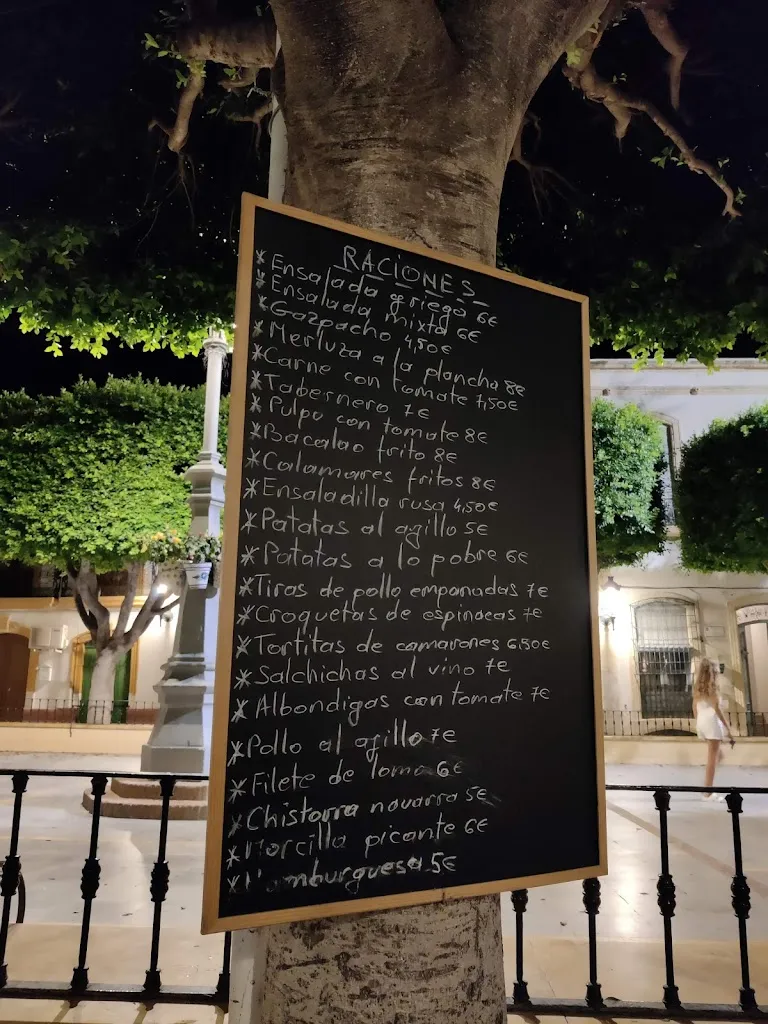 RACIONES
*Ensalada griega 6€
*Ensalada mixta 6€
*Gazpacho 4,50€
*Merluza a la plancha 8€
*Carne con tomate 7,50€
*Tabernero 7€
*Pulpo con tomate 8€
*Bacalao frito 8€
*Calamares fritos 8€
*Ensaladilla rusa 4,50€
*Patatas al agillo 5€
*Patatas a lo pobre 6€
*Tiras de pollo empanadas 7€
*Croquetas de espinacas 7€
*Tortitas de camarones 6,50€
*Salchichas al vino 7€
*Albondigas con tomate 7€
*Pollo al agillo 7€
*Filete de lomo 6€
*Chistorra navarra 5€
*Morcilla picante 6€
*Hamburguesa 5€